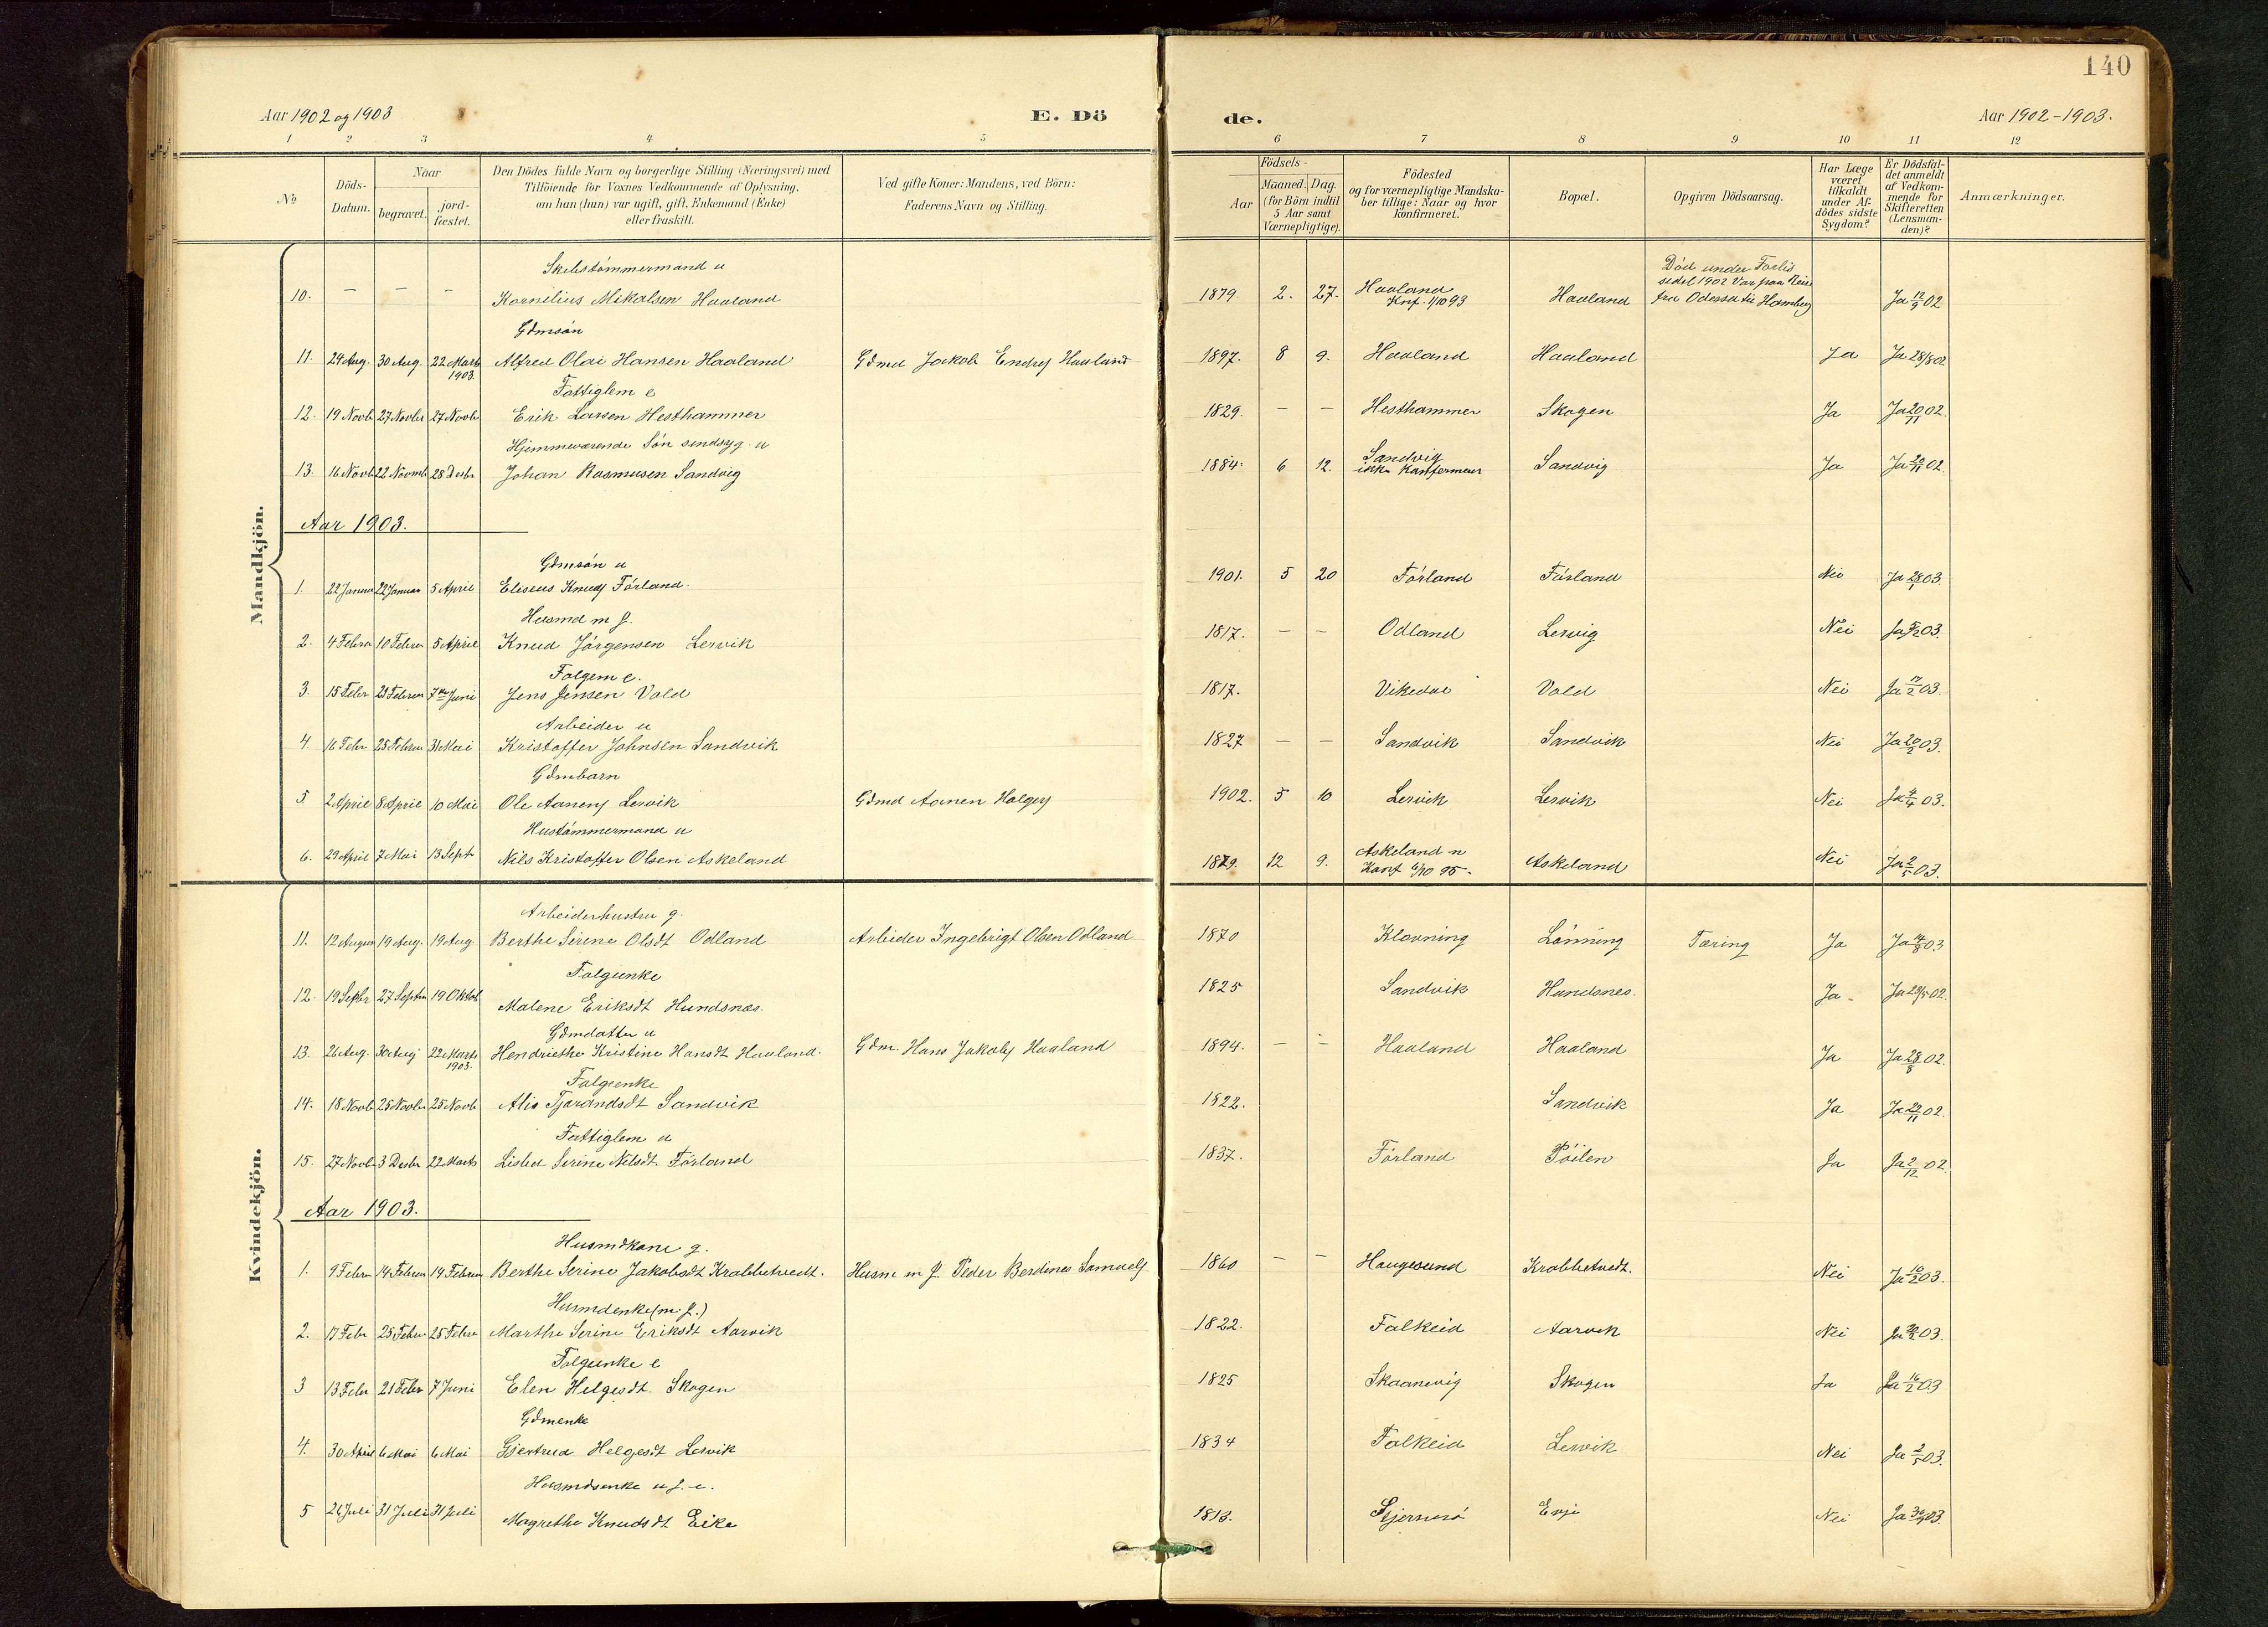 140
Aar 1902 og 1903
E. Dö
de.
Aar 1902-1903.
1 2 3 4 5 6 7 8 9 10 11 12
No
Döds-Datum.
Naar
begravet.
jord-fæstet.
Den Dödes fulde Navn og borgerlige Stilling (Næringsvei) med
Tilföiende for Voxnes Vedkommende af Oplysning,
om han (hun) var ugift, gift, Enkemand (Enke)
eller fraskilt.
Ved gifte Koner: Mandens, ved Börn:
Faderens Navn og Stilling.
Födsels-
Aar
Maaned. Dag.
(for Börn indtil
5 Aar samt
Værnepligtige).
Födested
og for værnepligtige Mandska-
ber tillige: Naar og hvor
konfirmeret.
Bopæl.
Opgiven Dödsaarsag.
Har Læge
været
tilkaldt
under Af-
dödes sidste
Sygdom?
Er Dödsfal-
det anmeldt
af Vedkom-
mende for
Skifteretten
(Lensman-
den)?
Anmærkninger.
Mandkjön.
Skibstömmermand u
10. — — — Kornelius Mikalsen Haaland 1879. 2. 27. Haaland Knf. 1/10 93 Haaland Död under Forlis sidst 1902 Var paa Reise fra Odessa til Hamburg Ja 12/9 02
Gdmsön
11. 24 Aug. 30 Aug. 22 Marts 1903. Alfred Olai Hansen Haaland Gdmd Jakob Endres Haaland 1897. 8 9. Haaland Haaland Ja Ja 28/8 02
Fattiglem e
12. 19 Novb 27 Novbr 27 Novb Erik Larsen Hesthammer 1829. — — Hesthammer Skogen Ja Ja 20/11 02.
Hjemmeværende Sön sindsyg. u
13. 16 Novb 22 Novemb 28 Desbr Johan Rasmusen Sandvig 1884. 6 12. Sandvig ikke Konfermeret Sandvig Ja Ja 20/11 02
Aar 1903.
Gdmsön u
1. 22 Januar 22 Januar 5 April Eliseus Knuds Förland. 1901. 5 20 Förland Förland Nei Ja 28/1 03.
Husmd m J.
2. 4 Febru 10 Februa 5 April Knud Jörgensen Lervik 1817. — — Odland Lervig Nei Ja 03.
Folgem e.
3. 15 Febr 21 Februar 7de Juni Jens Jensen Vold 1817. Vikedal Vold Nei Ja 17/2 03.
Arbeider u
4. 16 Febr 25 Februa 31 Mai Kristoffer Johnsen Sandvik 1827 — — Sandvik Sandvik Nei Ja 20/2 03.
Gdmbarn
5. 2 April 8 April 10 Mai Ole Aanens Lervik Gdmd Aanen Holges 1902. 5 10 Lervik Lervik Nei Ja 4/4 03.
Hustömmermand u
6. 29 April 7 Mai 13 Sept Nils Kristoffer Olsen Askeland 1879. 12 9. Askeland n Konf 6/10 95. Askeland Nei Ja 2/5 03.
Kvindekjön.
Arbeiderhustru g.
11. 12 August 19 Aug. 19 Aug. Berthe Serine Olsdt Odland Arbeider Ingebrigt Olsen Odland 1870 Klovning Lönning Tæring Ja Ja 14/8 03
Folgeenke
12. 19 Septbr 27 Septm 19 Oktob Malene Eriksdt Hundsnæs. 1825 Sandvik Hundsnes. Ja Ja 02.
Gdmdatter u
13. 26 Aug. 30 Aug 22 Marts 1903. Hendriethe Kristine Hansdt Haaland. Gdm. Hans Jakobs Haaland 1894. — — Haaland Haaland Ja Ja 28/8 02.
Folgeenke
14. 18 Novb 25 Novbr 25 Novb Alis Tjerandsdt Sandvik 1822. Sandvik Ja Ja 22/11 02.
Fattiglem u
15. 27 Novb 3 Desbr 22 Marts Lisbed Serine Nilsdt Förland 1837. Förland Ja Ja 2/12 02.
Aar 1903.
Husmdkone g.
1. 9 Febru 14 Februa 14 Februa Berthe Serine Jakobsdt Krabbetvedt. Husm m J. Peder Berdines Samuels 1860 — — Haugesund Krabbetvedt. Nei Ja 10/2 03.
Husmdenke (m. J.)
2. 17 Febr 25 Febru 25 Febru Marthe Serine Eriksdt Aarvik 1822. Falkeid Aarvik Nei Ja 03.
Folgeenke e
3 13 Febr 21 Febr 7 Juni Elen Helgesdt. Skogen 1825 Skaanevig Skogen Ja Ja 16/2 03
Gdmenke
4. 30 April 6 Mai 6 Mai Gjertrud Helgesdt Lervik 1834 Falkeid Lervik Nei Ja 2/5 03.
Husmdsenke u J. e.
5 26 Juli 31 Juli 31 Juli Magrethe Knudsdt Eike 1813. Stjernerö Evje Nei Ja 03.